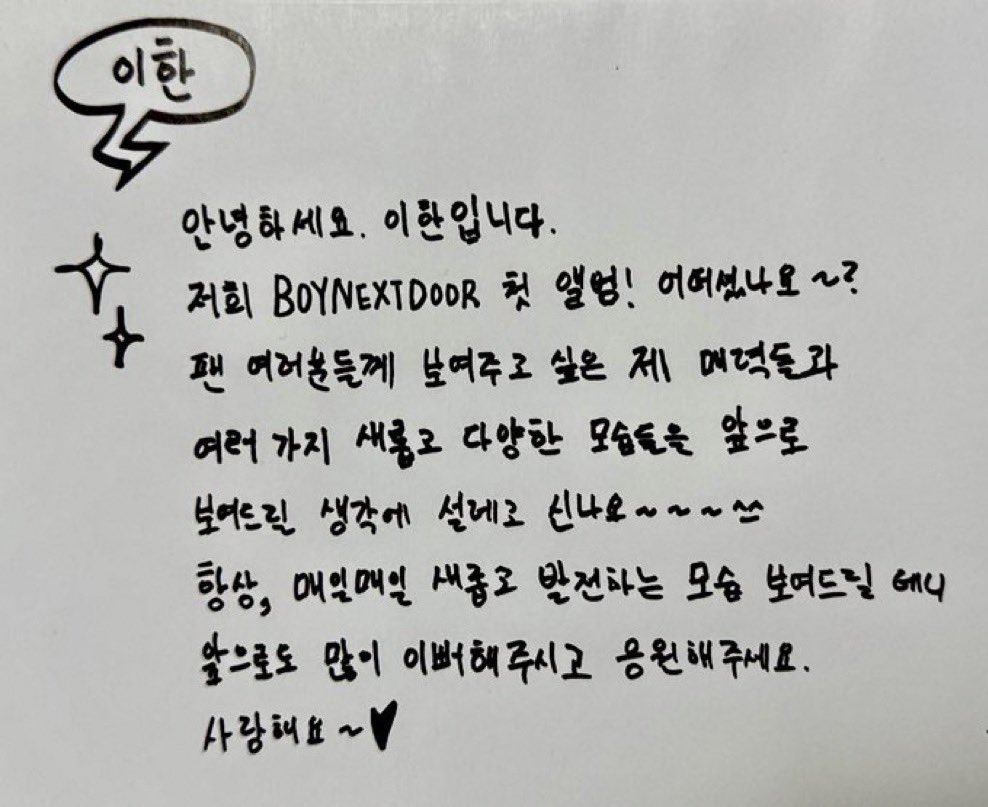 이한
안녕하세요. 이한입니다.
저희 BOYNEXTDOOR 첫 앨범! 어떠셨나요~?
팬 여러분들께 보여주고 싶은 제 매력들과
여러 가지 새롭고 다양한 모습들을 앞으로
보여드릴 생각에 설레고 신나요~~~ ^^
항상, 매일매일 새롭고 발전하는 모습 보여드릴 테니
앞으로도 많이 이뻐해주시고 응원해주세요.
사랑해요~♥